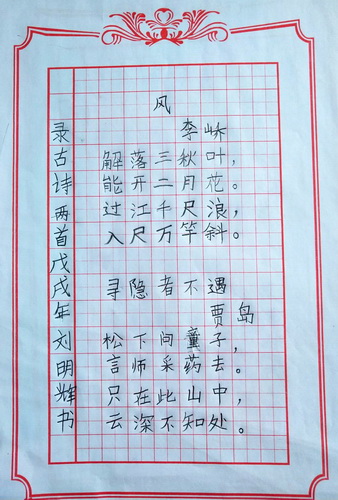 风
李峤
解落三秋叶，
能开二月花。
过江千尺浪，
入尺万竿斜。
寻隐者不遇
贾岛
松下问童子，
言师采药去。
只在此山中，
云深不知处。
录古诗两首戊戌年刘明辉书